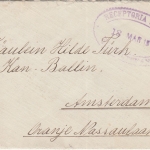 Fräulein Hilde Türk
Han-Ballin,
Amsterdam
Oranje Nassaulaan
MAR